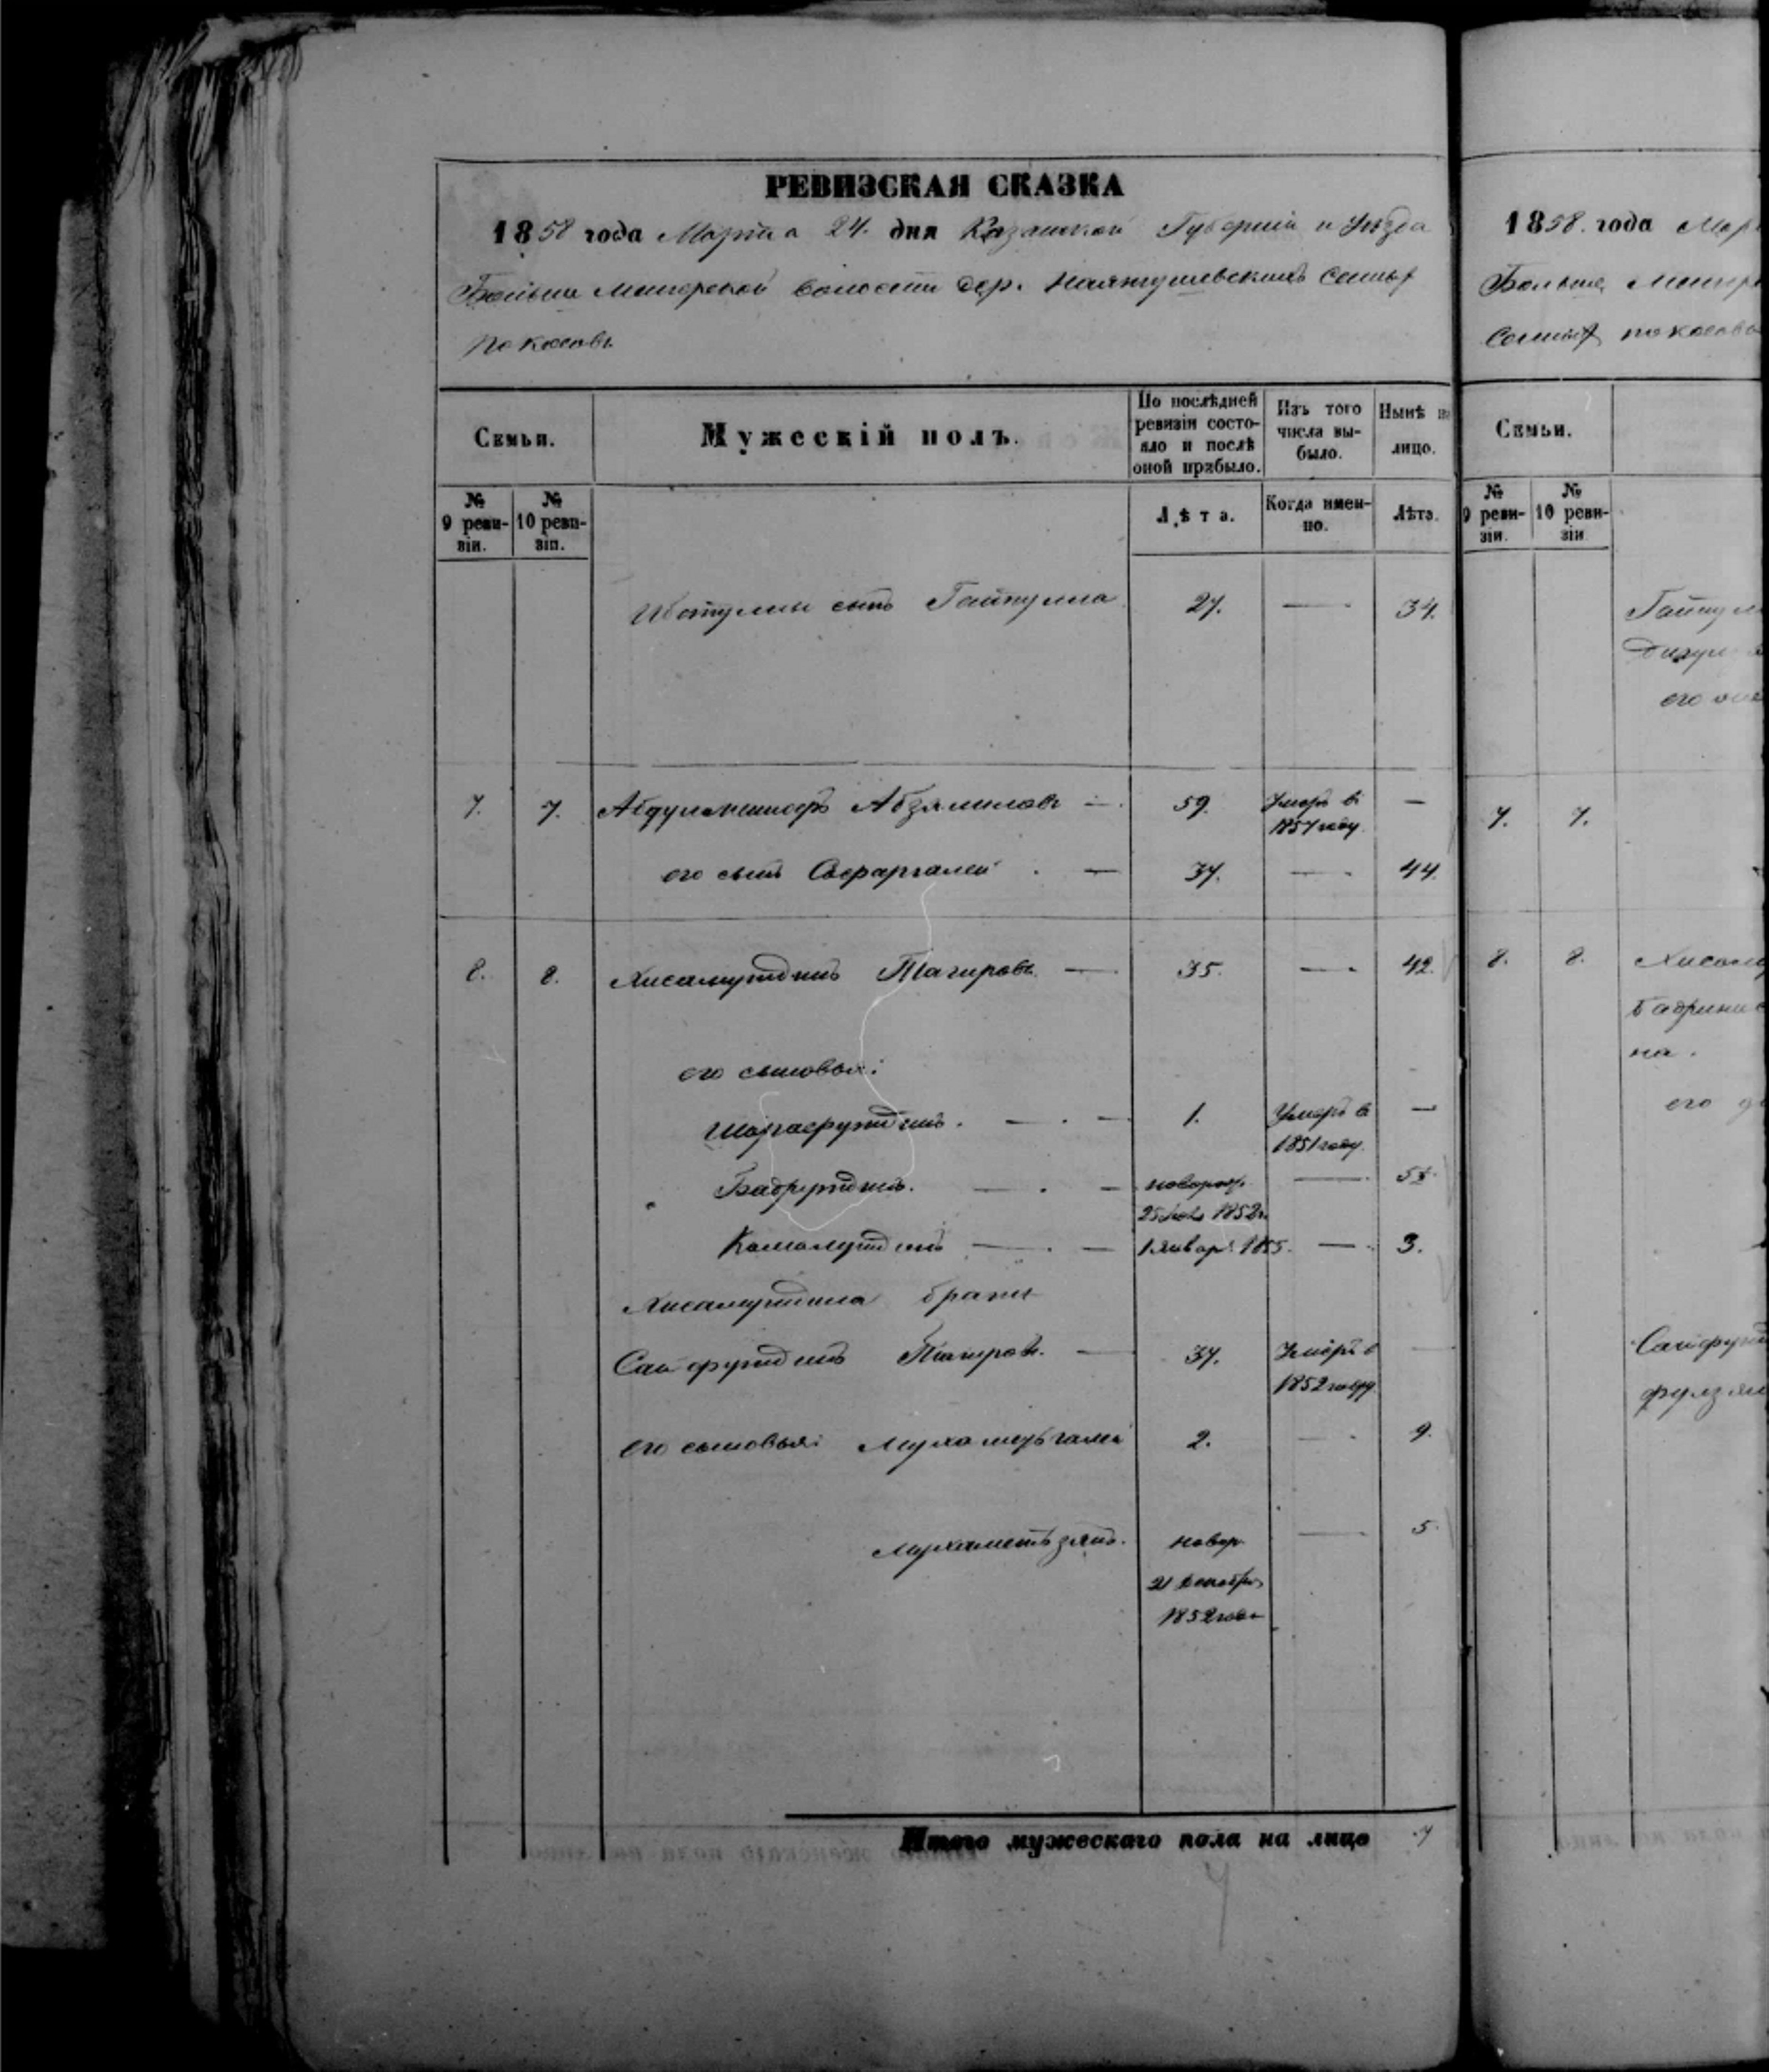 РЕВИЗСКАЯ СКАЗКА
1858 года Марта 24. дня Казанской Губернии и Уезда
Больше Менгерской волости дер.
покосовъ
Семьи.
Мужескій полъ.
По послѣдней ревизіи состояло и послѣ оной прибыло.
Изъ того числа выбыло.
Нынѣ на лицо.
№ 9 ревизіи.
№ 10 ревизіи.
Лѣта.
Когда именно.
Лѣта.
сынъ Гайнулла 27. — 34.
7. 7. Абдулменнафъ Абзялиловъ — 59. Умеръ въ 1857 году. —
его сынъ Сафаргалей — 37. — 44.
8. 8. Хисамутдинъ Тагировъ — 35. — 42.
его сыновья:
Шарафутдинъ. — 1. Умеръ в 1851 году. —
Бадрутдинъ. — новорож. 1852 г. — 5
Камалутдинъ — 1 Январ. 1855. — 3.
Хисамутдина братъ
Сайфутдинъ Тагировъ. — 37. Умеръ в 1852 году —
его сыновья: Мухаметьгалей 2. — 9.
Мухаметьзянъ. новор. 21 Декабря 1852 года — 5.
Итого мужескаго пола на лицо 7
1858. года Мар
Больше Менгер
покосовъ
Семьи.
№ 9 ревизіи.
№ 10 ревизіи
Гайнул
его
7. 7.
8. 8. Хисаму
Бадрини
на.
его
Сайфутд